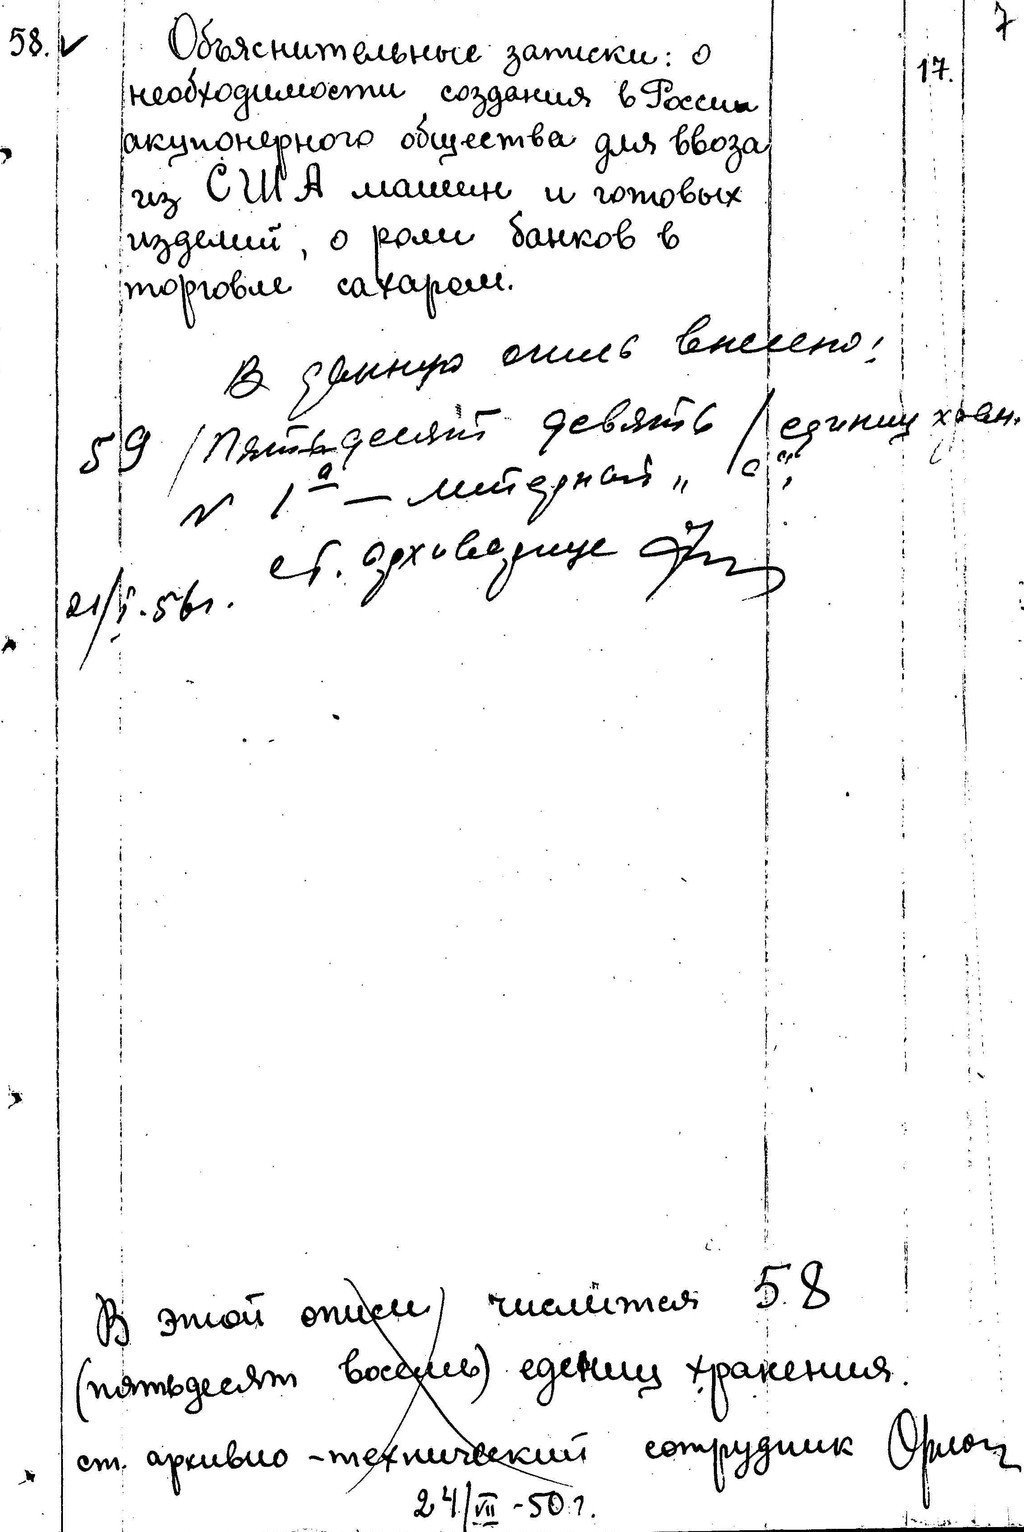 7
58. ✓ Объяснительные записки: о 17.
необходимости создания в России
акционерного общества для ввоза
из США машин и готовых
изделий, о роли банков в
торговле сахаром.
В данную опись внесено:
59 /Пятьдесят девять/ единиц хран.
№ 1а — литерный
ст. архиведице
21/I-56г.
В этой описи числится 58
(пятьдесят восемь) единиц хранения.
ст. архивно-технический сотрудник Орлон
24/VII-50г.